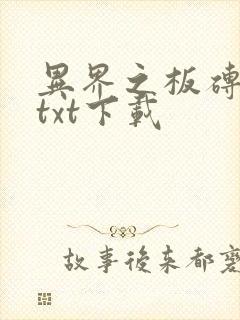 異界之板磚
txt下載
故事後來都